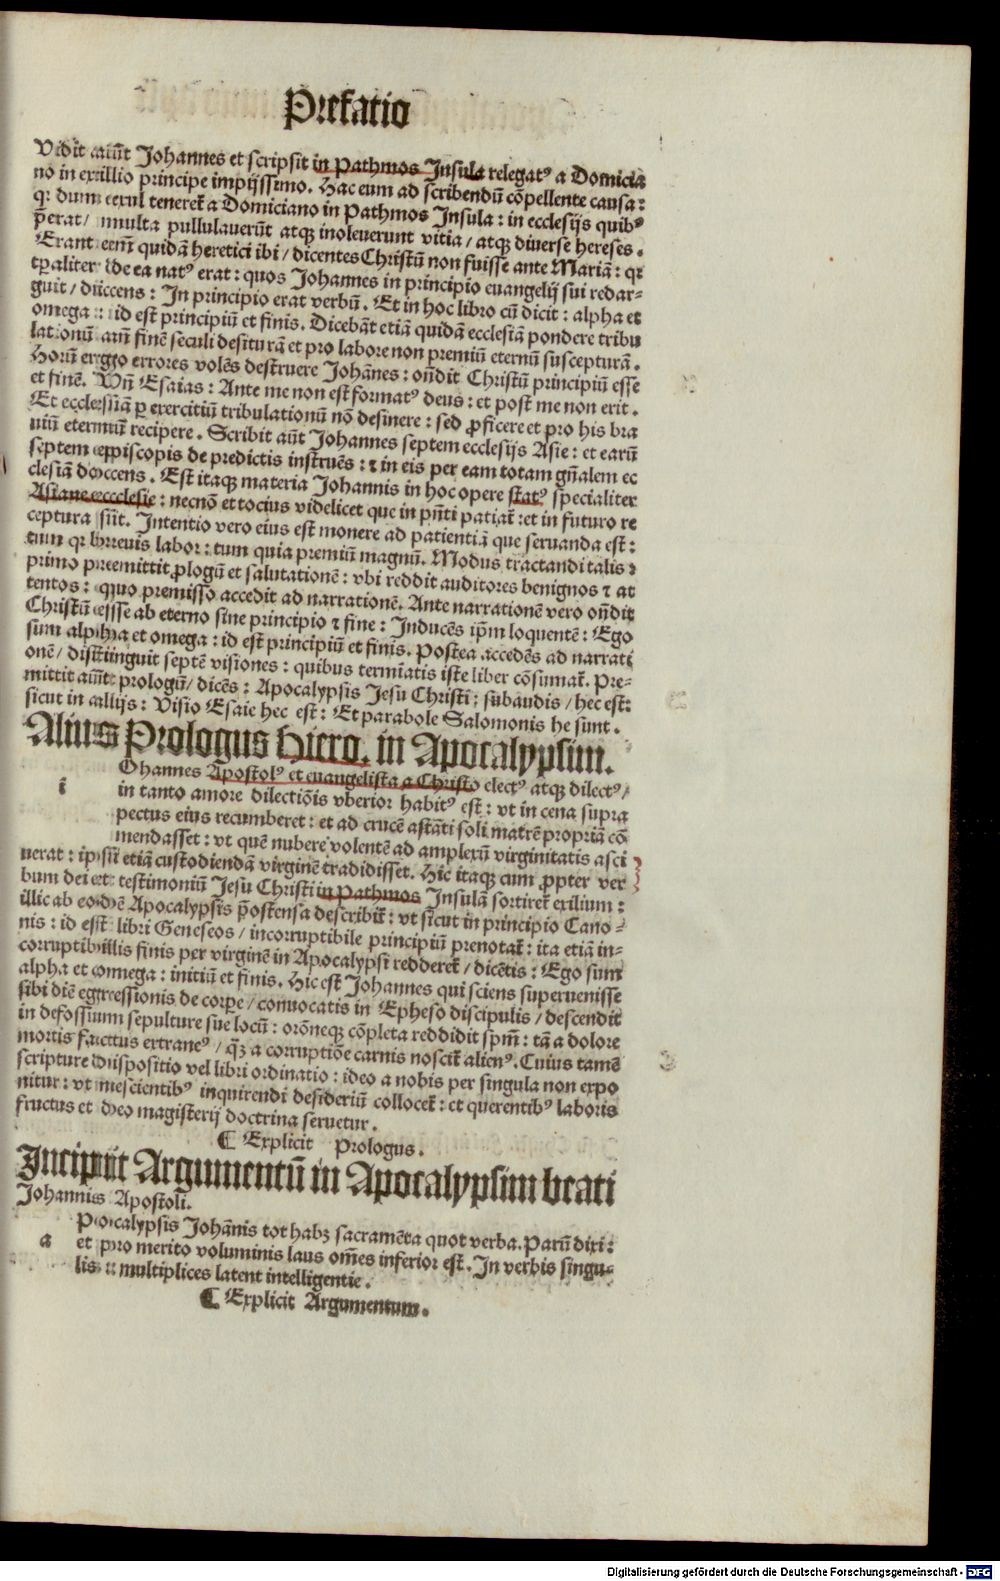 Prefatio
Vidit aūt Johannes et scripsit in Pathmos Insula relegatꝰ a Domicia
no in exillio principe impijssimo. Hac eum ad scribendū cōpellente causa:
qꝛ dum exul teneret̄ a Domiciano in Pathmos Insula: in ecclesijs quibꝰ
p̄erat/ multa pullulauerūt atqꝫ inoleuerunt vitia/ atqꝫ diuerse hereses.
Erant eem̄ quidā heretici ibi/ dicentes Christū non fuisse ante Mariā: qꝛ
tꝑaliter de ea natꝰ erat: quos Johannes in principio euangelij sui redar-
guit/ dicens: In principio erat verbū. Et in hoc libro cū dicit: alpha et
omega: id est principiū et finis. Dicebāt etiā quidā ecclesiā pondere tribu
lationū ante finē seculi desiturā et pro labore non premiū eternū suscepturā.
Horū ergo errores volēs destruere Johānes: oñdit Christū principiū esse
et finē. Vñ Esaias: Ante me non est formatꝰ deus: et post me non erit.
Et ecclesiā ꝑ exercitiū tribulationū nō desinere: sed ꝓficere et pro his bra
uiū eternum recipere. Scribit aūt Johannes septem ecclesijs Asie: et earū
septem episcopis de predictis instruēs: ⁊ in eis per eam totam gñalem ec
clesiā docens. Est itaqꝫ materia Johannis in hoc opere statꝰ specialiter
Asiane ecclesie: necnō et tocius videlicet que in pñti patiat̄: et in futuro re
ceptura sūt. Intentio vero eius est monere ad patientiā que seruanda est:
tum qꝛ breuis labor: tum quia premiū magnū. Modus tractandi talis:
primo premittit ꝓlogū et salutationē: vbi reddit auditores benignos ⁊ at
tentos: quo premisso accedit ad narrationē. Ante narrationē vero oñdit
Christū esse ab eterno sine principio ⁊ fine: Inducēs ipm̄ loquentē: Ego
sum alpha et omega: id est principiū et finis. Postea accedēs ad narrati
onē/ distinguit septē visiones: quibus termiatis iste liber cōsumat̄. Pre-
mittit aūt prologū/ dicēs: Apocalypsis Jesu Christi: subaudis/ hec est:
sicut in alijs: Visio Esaie hec est: Et parabole Salomonis he sunt.
Alius Prologus Hiero. in Apocalypsim.
i
Ohannes Apostolꝰ et euangelista a Christo electꝰ atqꝫ dilectꝰ/
in tanto amore dilectiōis vberior habitꝰ est: vt in cena supra
pectus eius recumberet: et ad crucē astāti soli matrē propriā cō
mendasset: vt quē nubere volentē ad amplexū virginitatis asci
uerat: ipsū etiā custodiendā virginē tradidisset. Hic itaqꝫ cum ꝓpter ver
bum dei et testimoniū Jesu Christi in Pathmos Insulā sortiret̄ exilium:
illic ab eodē Apocalypsis p̄ostensa describit̄: vt sicut in principio Cano-
nis: id est libri Geneseos/ incorruptibile principiū prenotat̄: ita etiā in-
corruptibilis finis per virginē in Apocalypsi redderet̄/ dicētis: Ego sum
alpha et omega: initiū et finis. Hic est Johannes qui sciens superuenisse
sibi diē egressionis de corꝑe/ conuocatis in Epheso discipulis/ descendit
in defossum sepulture sue locū: orōneqꝫ cōpleta reddidit spm̄: tā a dolore
mortis factus extraneꝰ/ qꝫ̄ a corruptiōe carnis noscit̄ alienꝰ. Cuius tamē
scripture dispositio vel libri ordinatio: ideo a nobis per singula non expo
nitur: vt nescientibꝰ inquirendi desideriū collocet̄: et querentibꝰ laboris
fructus et deo magisterij doctrina seruetur.
¶ Explicit Prologus.
Incipiūt Argumentū in Apocalypsim beati
Johannis Apostoli.
a
Pocalypsis Johānis tot habꝫ sacramēta quot verba. Parū dixi:
et pro merito voluminis laus om̄es inferior est. In verbis singu-
lis multiplices latent intelligentie.
¶ Explicit Argumentum.
Digitalisierung gefördert durch die Deutsche Forschungsgemeinschaft - DFG